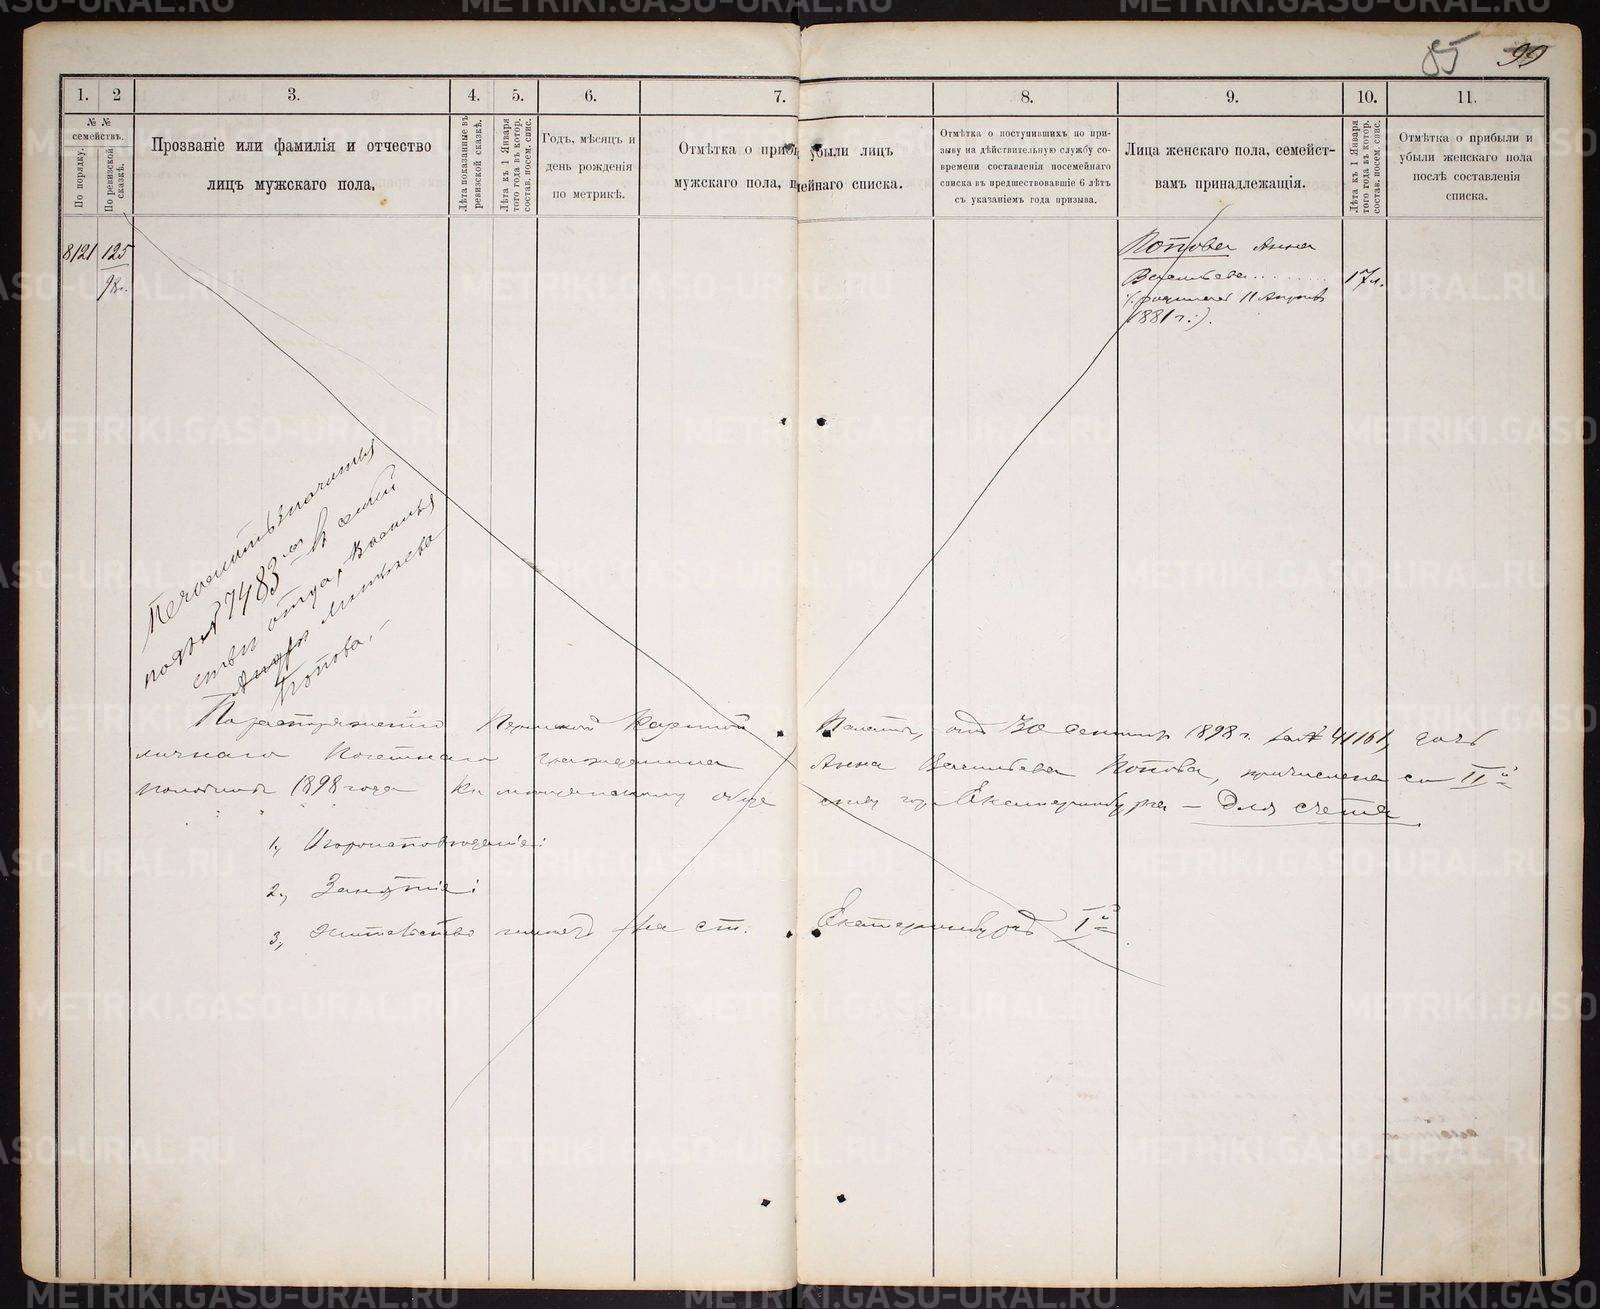 85 99
1. 2 3. 4. 5. 6. 7. 8. 9. 10. 11.
№ № семействъ.
По порядку.
По ревизской сказкѣ.
Прозваніе или фамилія и отчество
лицъ мужскаго пола.
Лѣта показанные въ
ревизской сказкѣ.
Лѣта къ 1 Января
того года въ котор.
состав. посем. спис.
Годъ, мѣсяцъ и
день рожденія
по метрикѣ.
Отмѣтка о приб убыли лицъ
мужскаго пола, п ейнаго списка.
Отмѣтка о поступившихъ по при-
зыву на дѣйствительную службу со-
времени составленія посемейнаго
списка въ предшествовавшіе 6 лѣтъ
съ указаніемъ года призыва.
Лица женскаго пола, семейст-
вамъ принадлежащія.
Лѣта къ 1 Января
того года въ котор.
состав. посем. спис.
Отмѣтка о прибыли и
убыли женскаго пола
послѣ составленія
списка.
8121 125
98г.
Попова Анна
Васильева 17 л.
(:родилась 11 Августа
1881 г.:).
подъ № 7483 къ семей
ству отца, Василья
Попова.
По распоряженію Пермской Казенной Палаты, отъ 30 Сентября 1898 г. за № 41161, дочь
личнаго Почетнаго гражданина Анна Васильева Попова, причислена со IIй
половины 1898 года къ мѣщанскому обще ству гор. Екатеринбурга - для счета
1, Вѣроисповѣданіе:
2, Занятіе:
3, Жительство имѣетъ на ст. Екатеринбургъ Iй
METRIKI.GASO-URAL.RU